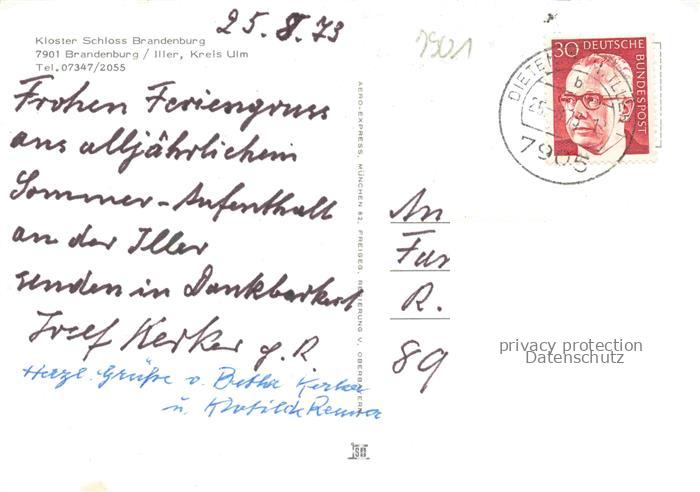 25. 8. 73
7901
Kloster Schloss Brandenburg
7901 Brandenburg / Iller, Kreis Ulm
Tel. 07347/2055
Frohen Feriengruss
aus alljährlichem
Sommer-Aufenthalt
an der Iller
senden in Dankbarkeit
Josef Kerker g. R.
Herzl. Grüße v. Betha Kerker
u. Klotilde
AERO-EXPRESS, MÜNCHEN 82, FREIGEG. REGIERUNG V. OBERBAYERN
30 DEUTSCHE
BUNDESPOST
7905
b
An
Fa
R.
89
privacy protection
Datenschutz